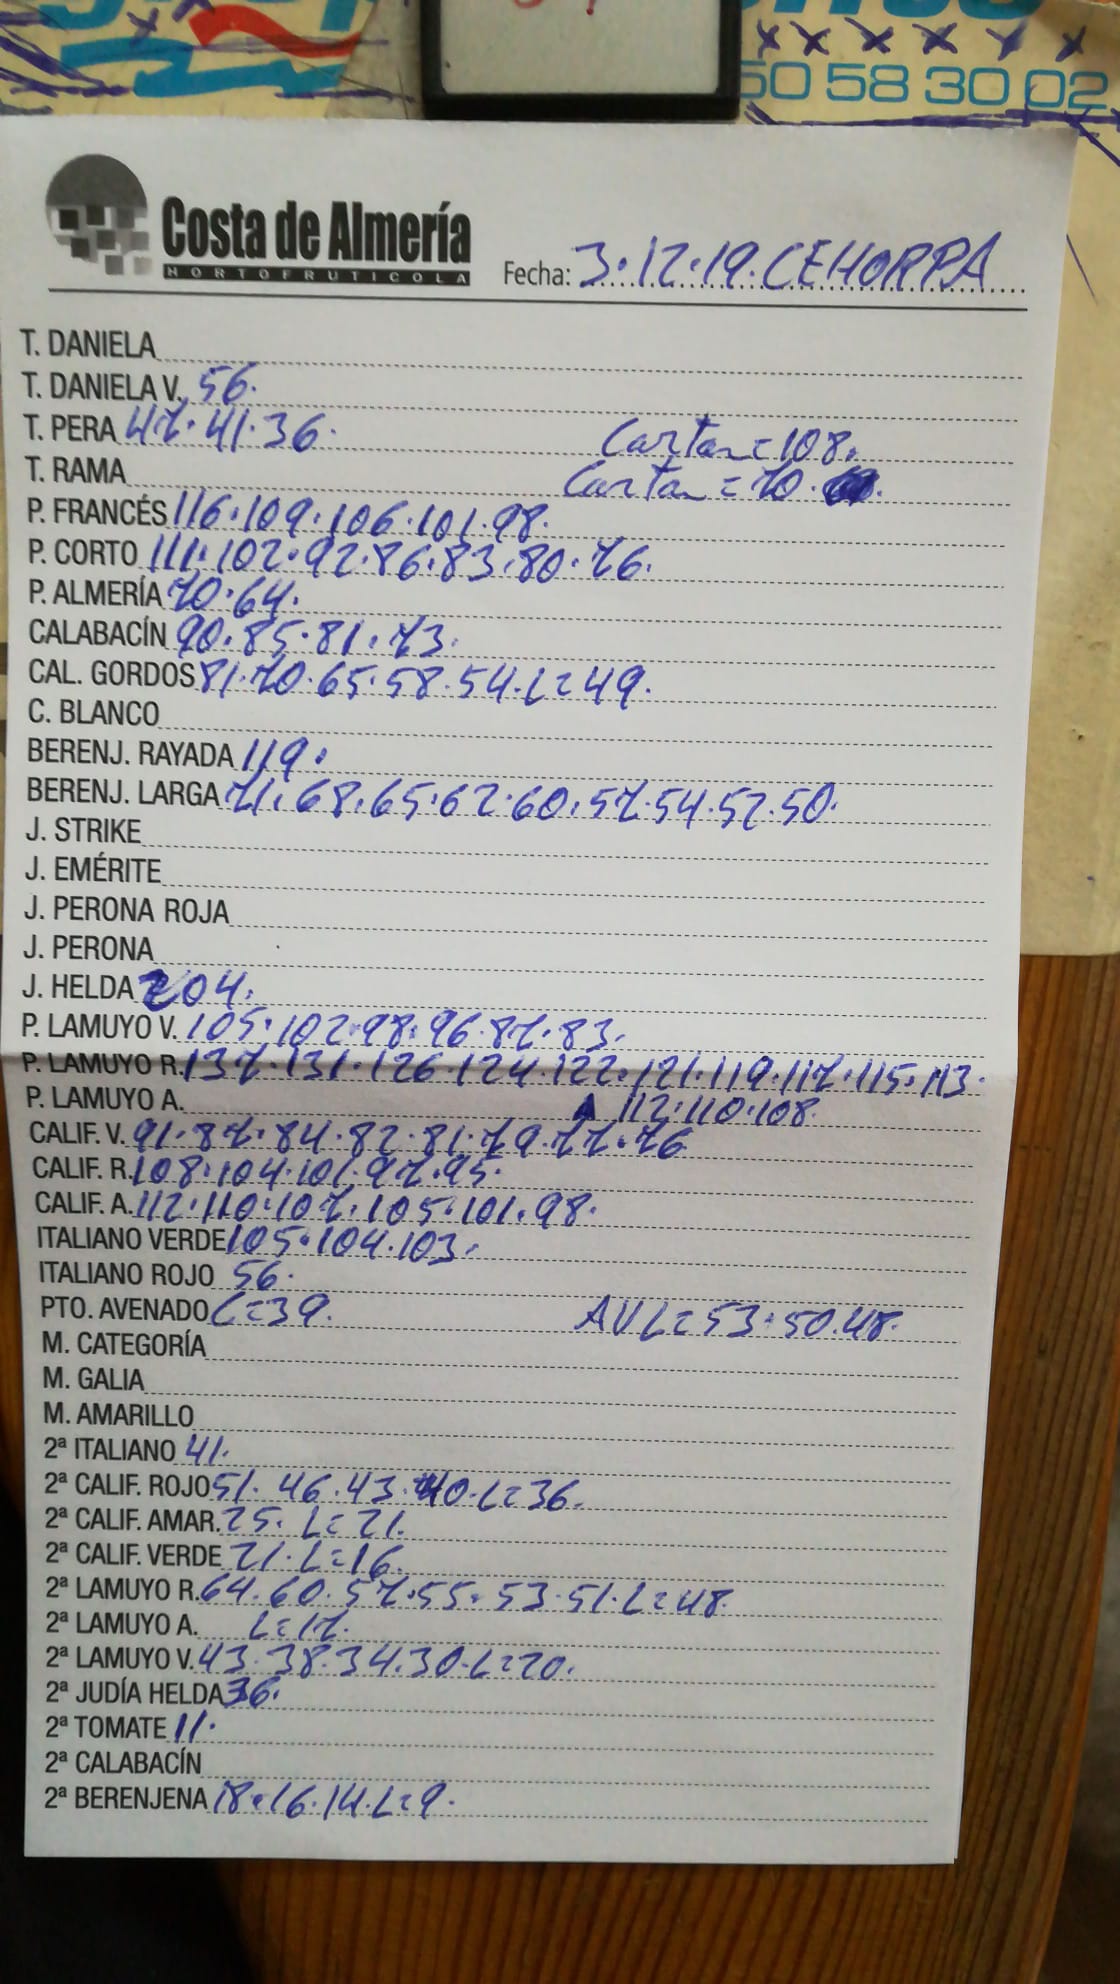 50 58 30 02
Costa de Almería
HORTOFRUTICOLA
Fecha: 3.12.19.CEHORPA
T. DANIELA
T. DANIELA V. 56.
T. PERA 47.41.36. Carton=108.
T. RAMA Carton=70.
P. FRANCÉS 116.109.106.101.98.
P. CORTO 111.102.92.86.83.80.76.
P. ALMERÍA 70.64.
CALABACÍN 90.85.81.73.
CAL. GORDOS 81.70.65.58.54.L=49.
C. BLANCO
BERENJ. RAYADA 119.
BERENJ. LARGA 71.68.65.62.60.57.54.52.50.
J. STRIKE
J. EMÉRITE
J. PERONA ROJA
J. PERONA
J. HELDA 204.
P. LAMUYO V. 105.102.98.96.87.83.
P. LAMUYO R. 137.131.126.124.122.121.119.117.115.113.
P. LAMUYO A. 112.110.108.
CALIF. V. 91.87.84.82.81.79.77.76
CALIF. R. 108.104.101.97.95.
CALIF. A. 112.110.107.105.101.98.
ITALIANO VERDE 105.104.103.
ITALIANO ROJO 56.
PTO. AVENADO L=39. AVL=53.50.48.
M. CATEGORÍA
M. GALIA
M. AMARILLO
2ª ITALIANO 41.
2ª CALIF. ROJO 51.46.43.40.L=36.
2ª CALIF. AMAR. 25. L=21.
2ª CALIF. VERDE 21.L=16.
2ª LAMUYO R. 64.60.57.55.53.51.L=48.
2ª LAMUYO A. L=17.
2ª LAMUYO V. 43.38.34.30.L=20.
2ª JUDÍA HELDA 36.
2ª TOMATE 11.
2ª CALABACÍN
2ª BERENJENA 18.16.14.L=9.